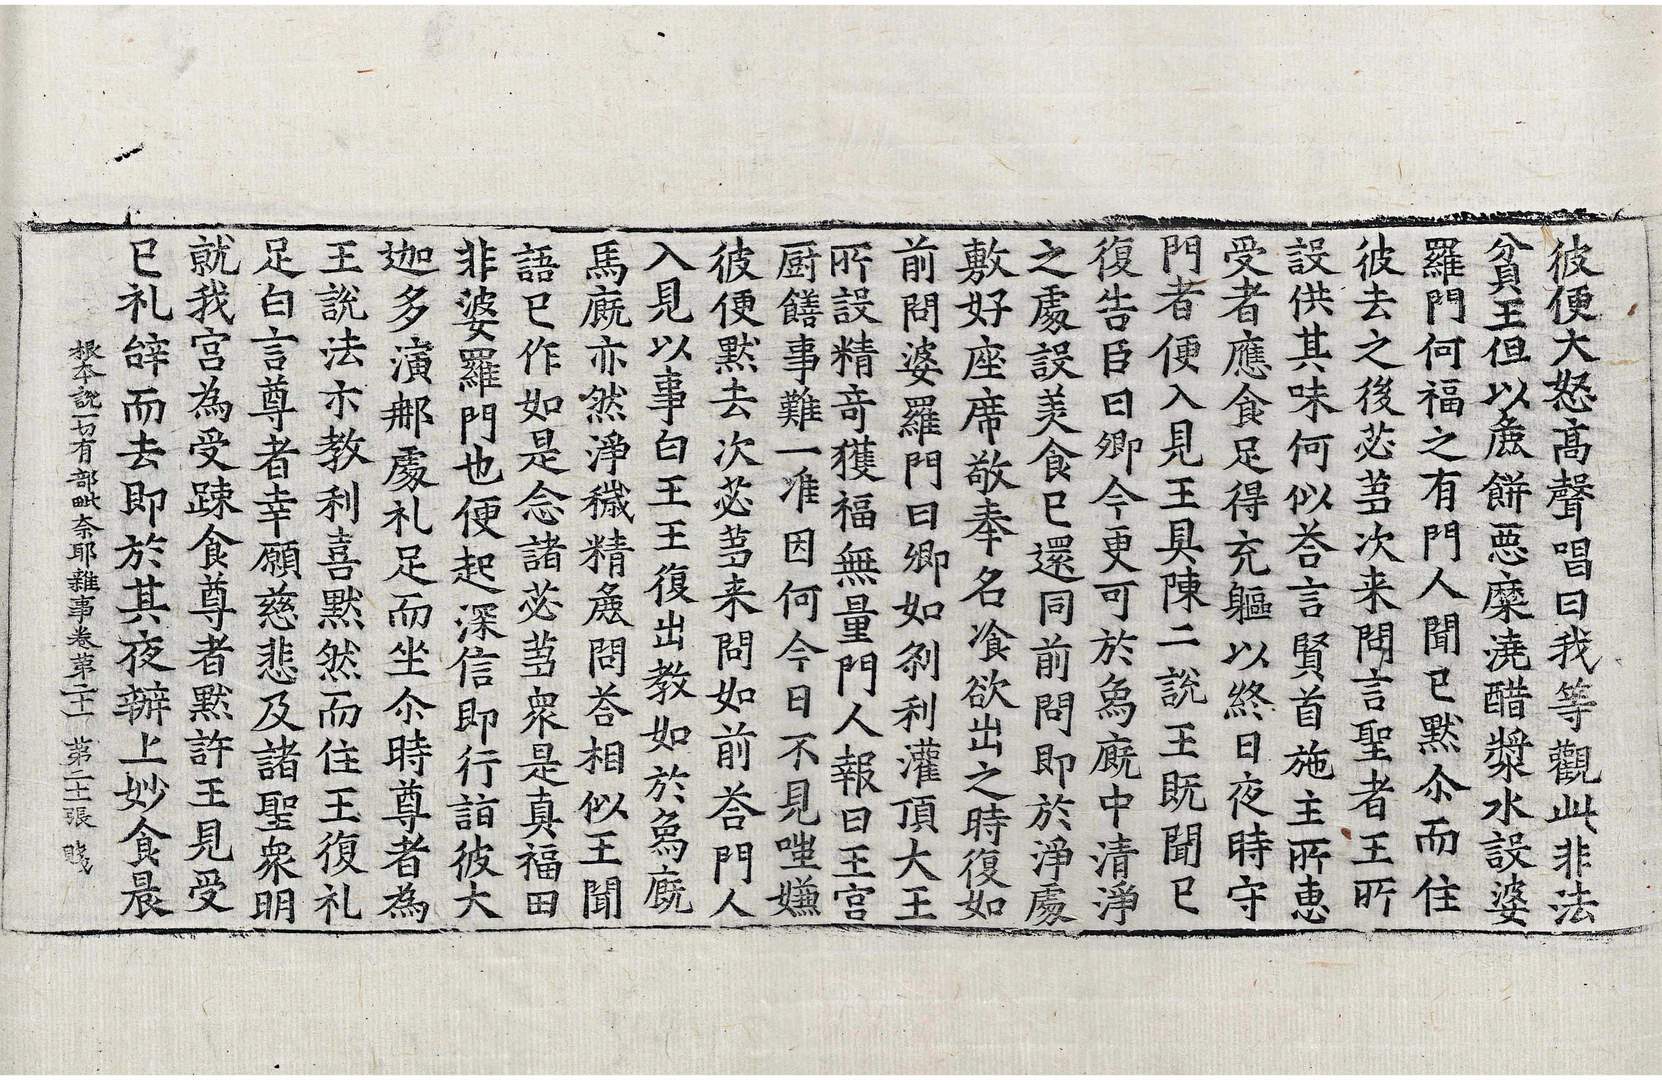 彼便大怒高聲唱曰我等觀此非法
貧王但以麁餅悪糜澆醋漿水設婆
羅門何福之有門人聞已默尒而住
彼去之後苾芻次来問言聖者王所
設供其味何似荅言賢首施主所恵
受者應食足得充軀以終日夜時守
門者便入見王具陳二說王既聞已
復告臣曰卿今更可於象廐中清淨
之處設羙食已還同前問即於淨處
敷好座席敬奉名飡欲出之時復如
前問婆羅門曰卿如刹利灌頂大王
所設精竒獲福無量門人報曰王宫
厨饍事難一准因何今日不見嗤嫌
彼便默去次苾芻来問如前荅門人
入見以事白王王復出教如於象廐
馬廐亦然淨穢精麁問荅相似王聞
語已作如是念諸苾芻衆是真福田
非婆羅門也便起深信即行詣彼大
迦多演那處礼足而坐尒時尊者為
王說法示教利喜默然而住王復礼
足白言尊者幸願慈悲及諸聖衆明
就我宫為受踈食尊者默許王見受
已礼辝而去即於其夜辦上妙食晨
根本說一切有部毗奈耶雜事卷第二十一 第二十張 賤